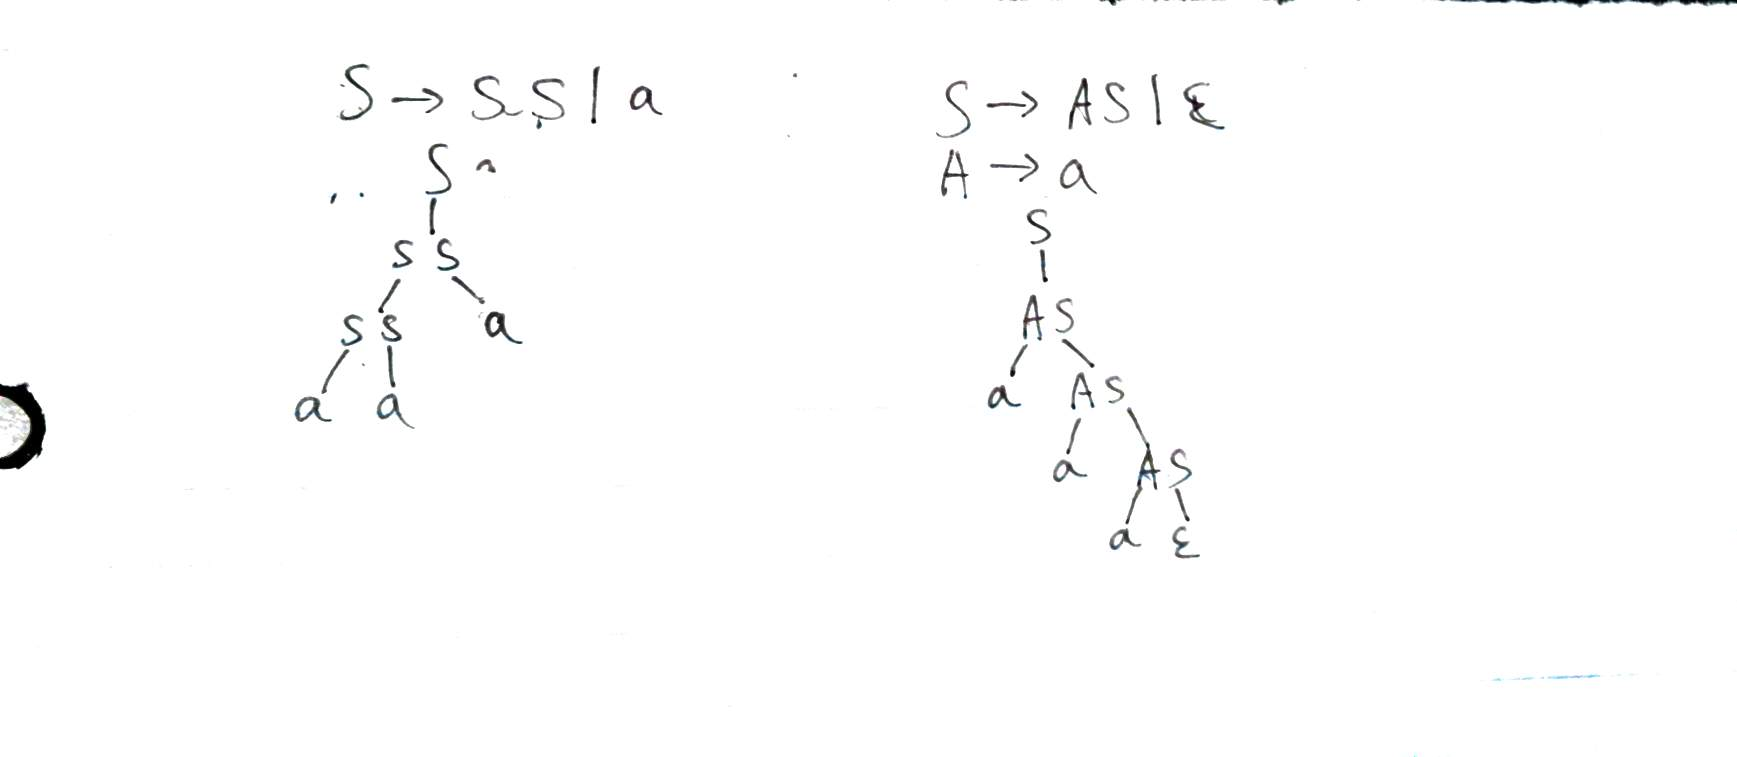 S → SS | a
S
S S
S S a
a a
S → AS | ε
A → a
S
A S
a A S
a A S
a ε